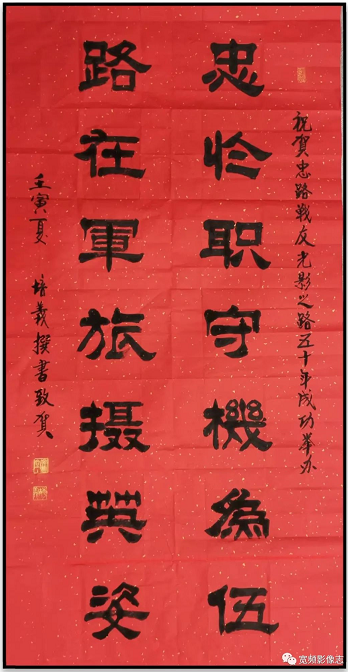 祝贺忠路战友光影之路五十年成功举办
忠於职守機為伍
路在軍旅摄英姿
壬寅夏 培義撰書致贺
宽频影像志